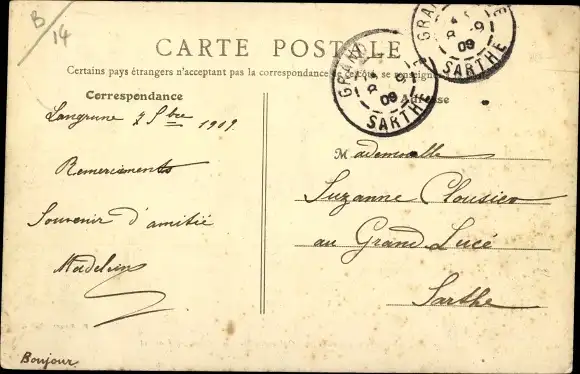 B/14
CARTE POSTALE
Certains pays étrangers n'acceptant pas la correspondance de ce côté, se renseigner
Correspondance
Adresse
GRAND
8 9
09
SARTHE
GRAND
8
09
SARTHE
Langrune 7 Sbre 1909.
Remerciements
Souvenir d'amitié
Madeleine
Mademoiselle
Suzanne
au Grand Lucé
Sarthe
Bonjour